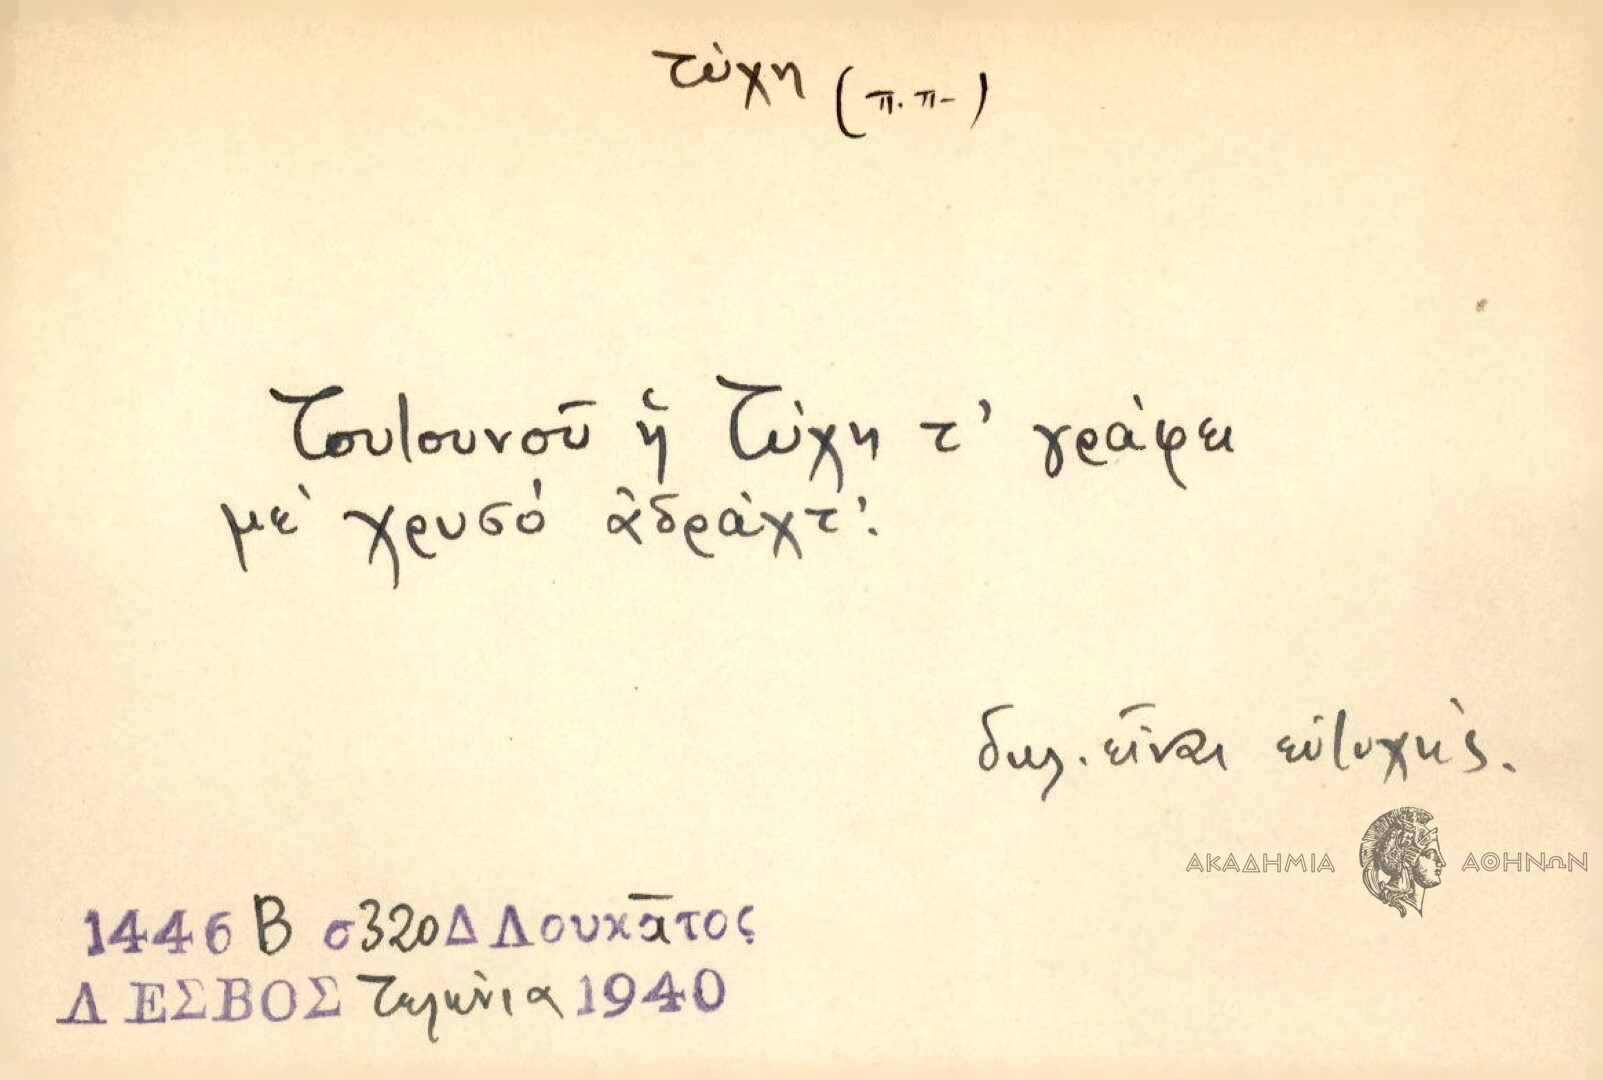 τύχη (π.π-)
Τουτουνοῦ ἡ Τύχη τ' γράφει
μὲ χρυσό ἀδράχτ'.
δηλ. εἶναι εὐτυχής.
ΑΚΑΔΗΜΙΑ ΑΘΗΝΩΝ
1446 Β σ320 Δ Λουκᾶτος
ΛΕΣΒΟΣ Τελώνια 1940